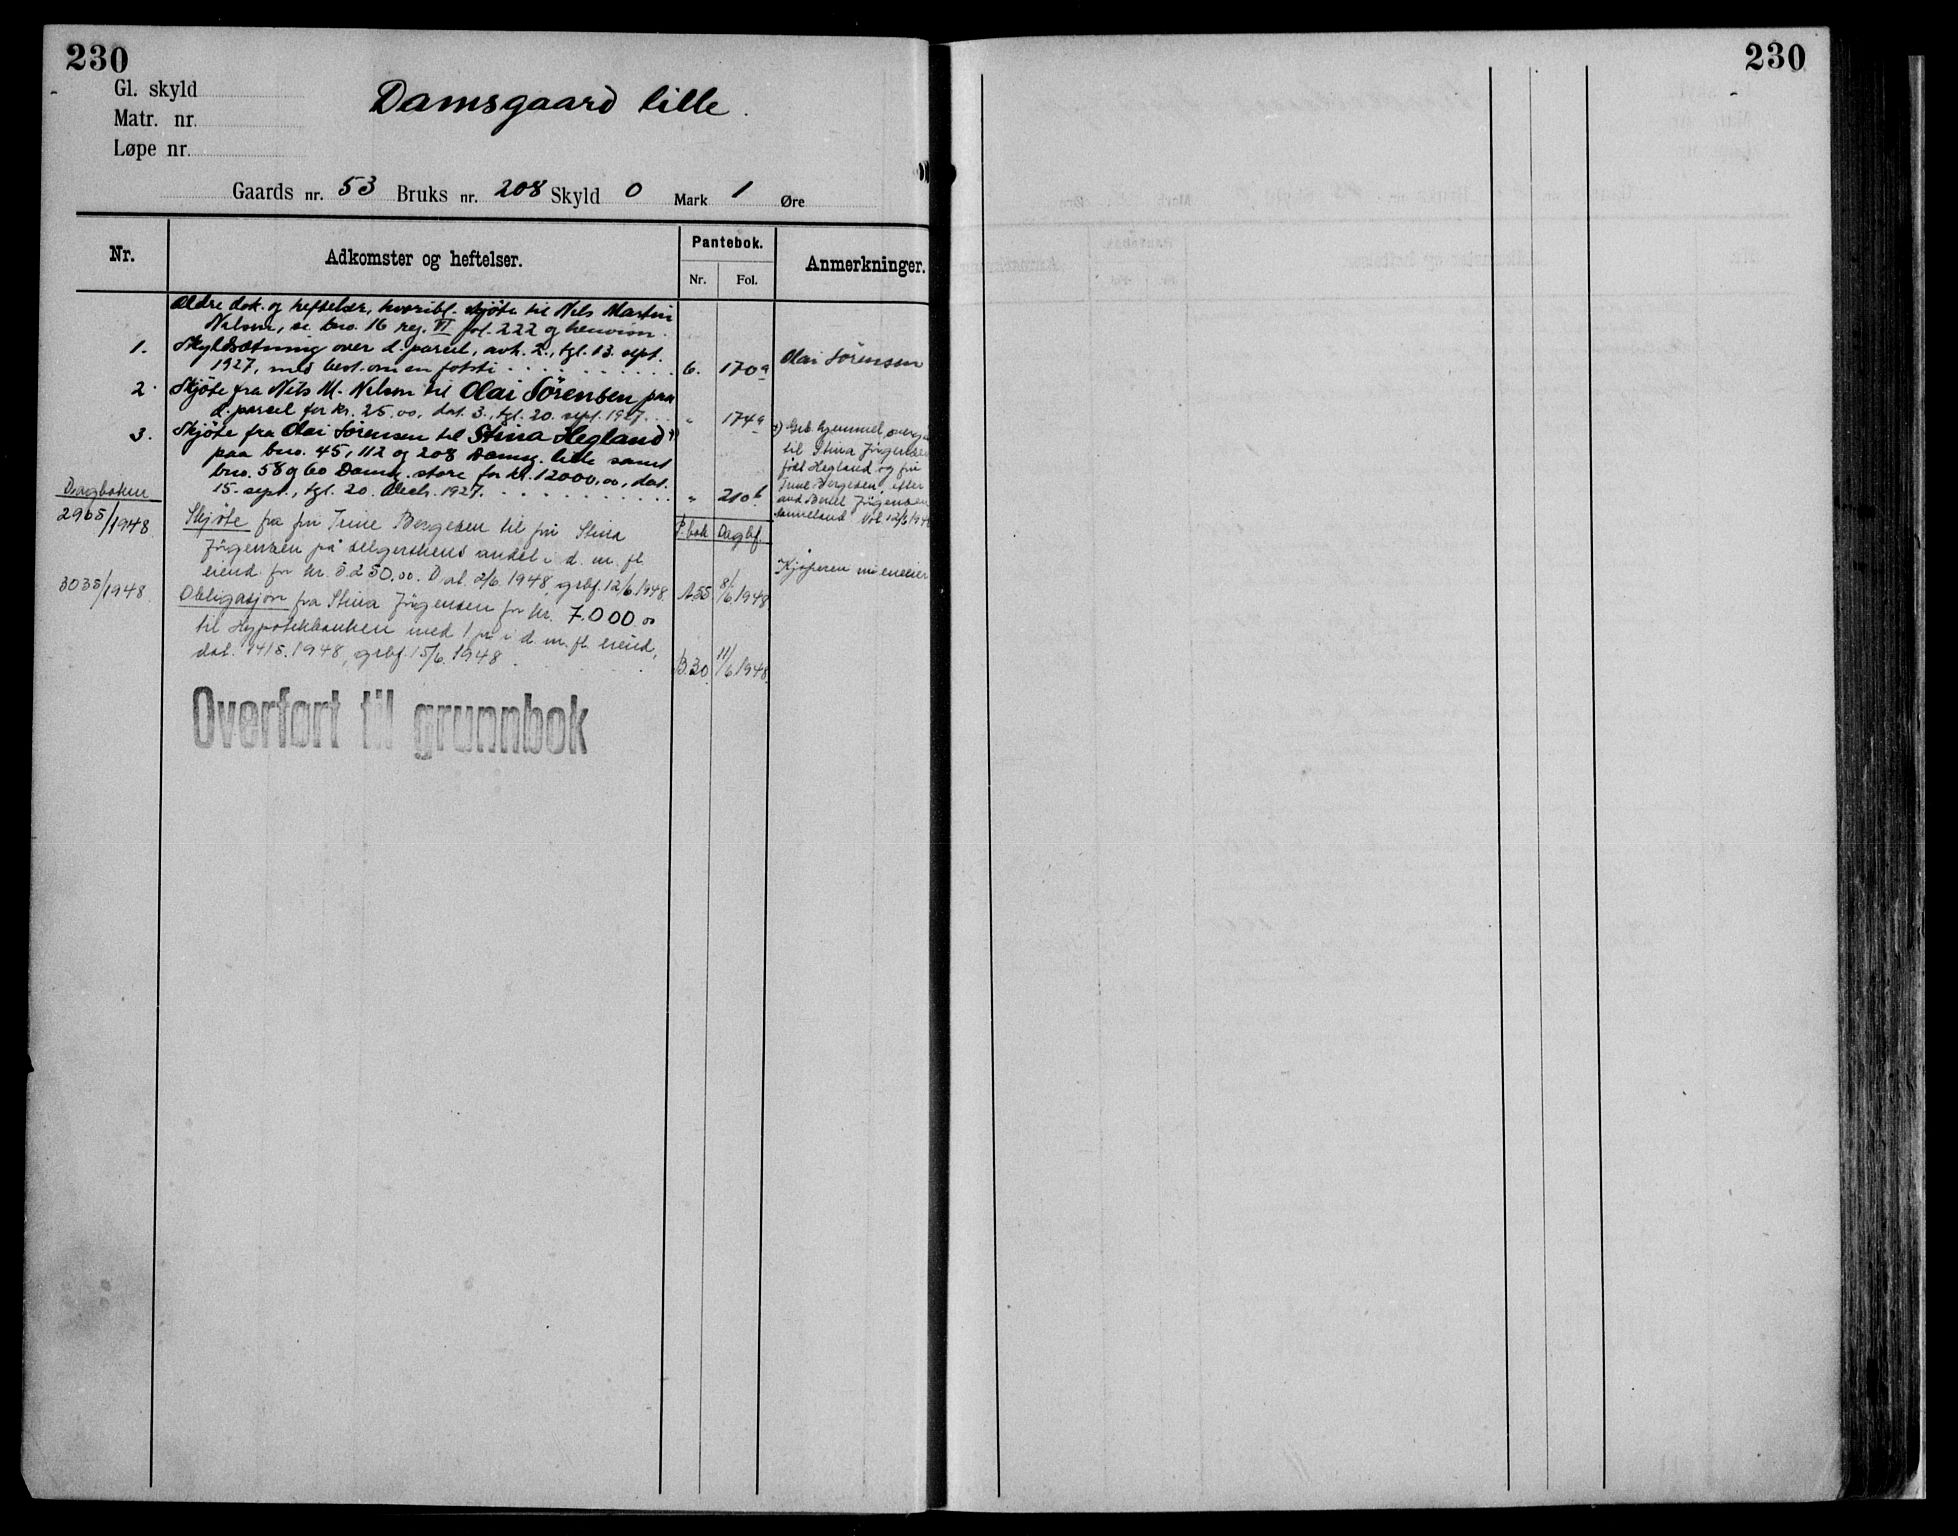 230
230
Gl. skyld
Matr. nr.
Løpe nr.
Damsgaard lille.
Gaards nr. 53 Bruks nr. 208 Skyld 0 Mark 1 Øre
Nr.
Adkomster og heftelser.
Pantebok.
Nr. Fol.
Anmerkninger.
Ældre dok. og heftelser, hvoribl. skjøte til Nils Martin
Nilsen, se bno. 16 reg. VI fol. 222 og henvisn.
1. Skyldsætning over d. parsel, avh. 2., tgl. 13. sept.
1927, med best. om en fotsti 6. 170a Olai Sørensen
2. Skjøte fra Nils M. Nilsen til Olai Sörensen paa
d. parsel for kr. 25.00, dat. 3., tgl. 20. sept. 1927. " 174a
3. Skjøte fra Olai Sørensen til Stina Hegland +)
paa bno. 45, 112 og 208 Damsg. lille samt
bno. 58 og 60 Damsg. store for kr. 12000,00, dat.
15. sept., tgl. 20. Decb. 1927. " 210b
+) Grb. hjemmel
til Stina Jörgensen
født Hegland og fru
Trine Bergesen, efter
Jörgensen
12/6 1948
Dagboken
P.bok Dagbf.
2965/1948 Skjöte fra fru Trine Bergesen til fru Stina
Jörgensen på selgerskens andel i d. m. fl.
eiend. for kr. 5250.00. Dat. 2/6. 1948, grbf. 12/6 1948. A55 8/6 1948 Kjöperen nu eneeier
3035/1948 Obligasjon fra Stina Jörgensen for kr. 7.000.00
til Hypotekbanken med 1 pr. i d. m. fl. eiend,
dat. 14/5.1948, grbf. 15/6. 1948 B.30. 11/6 1948.
Overført til grunnbok